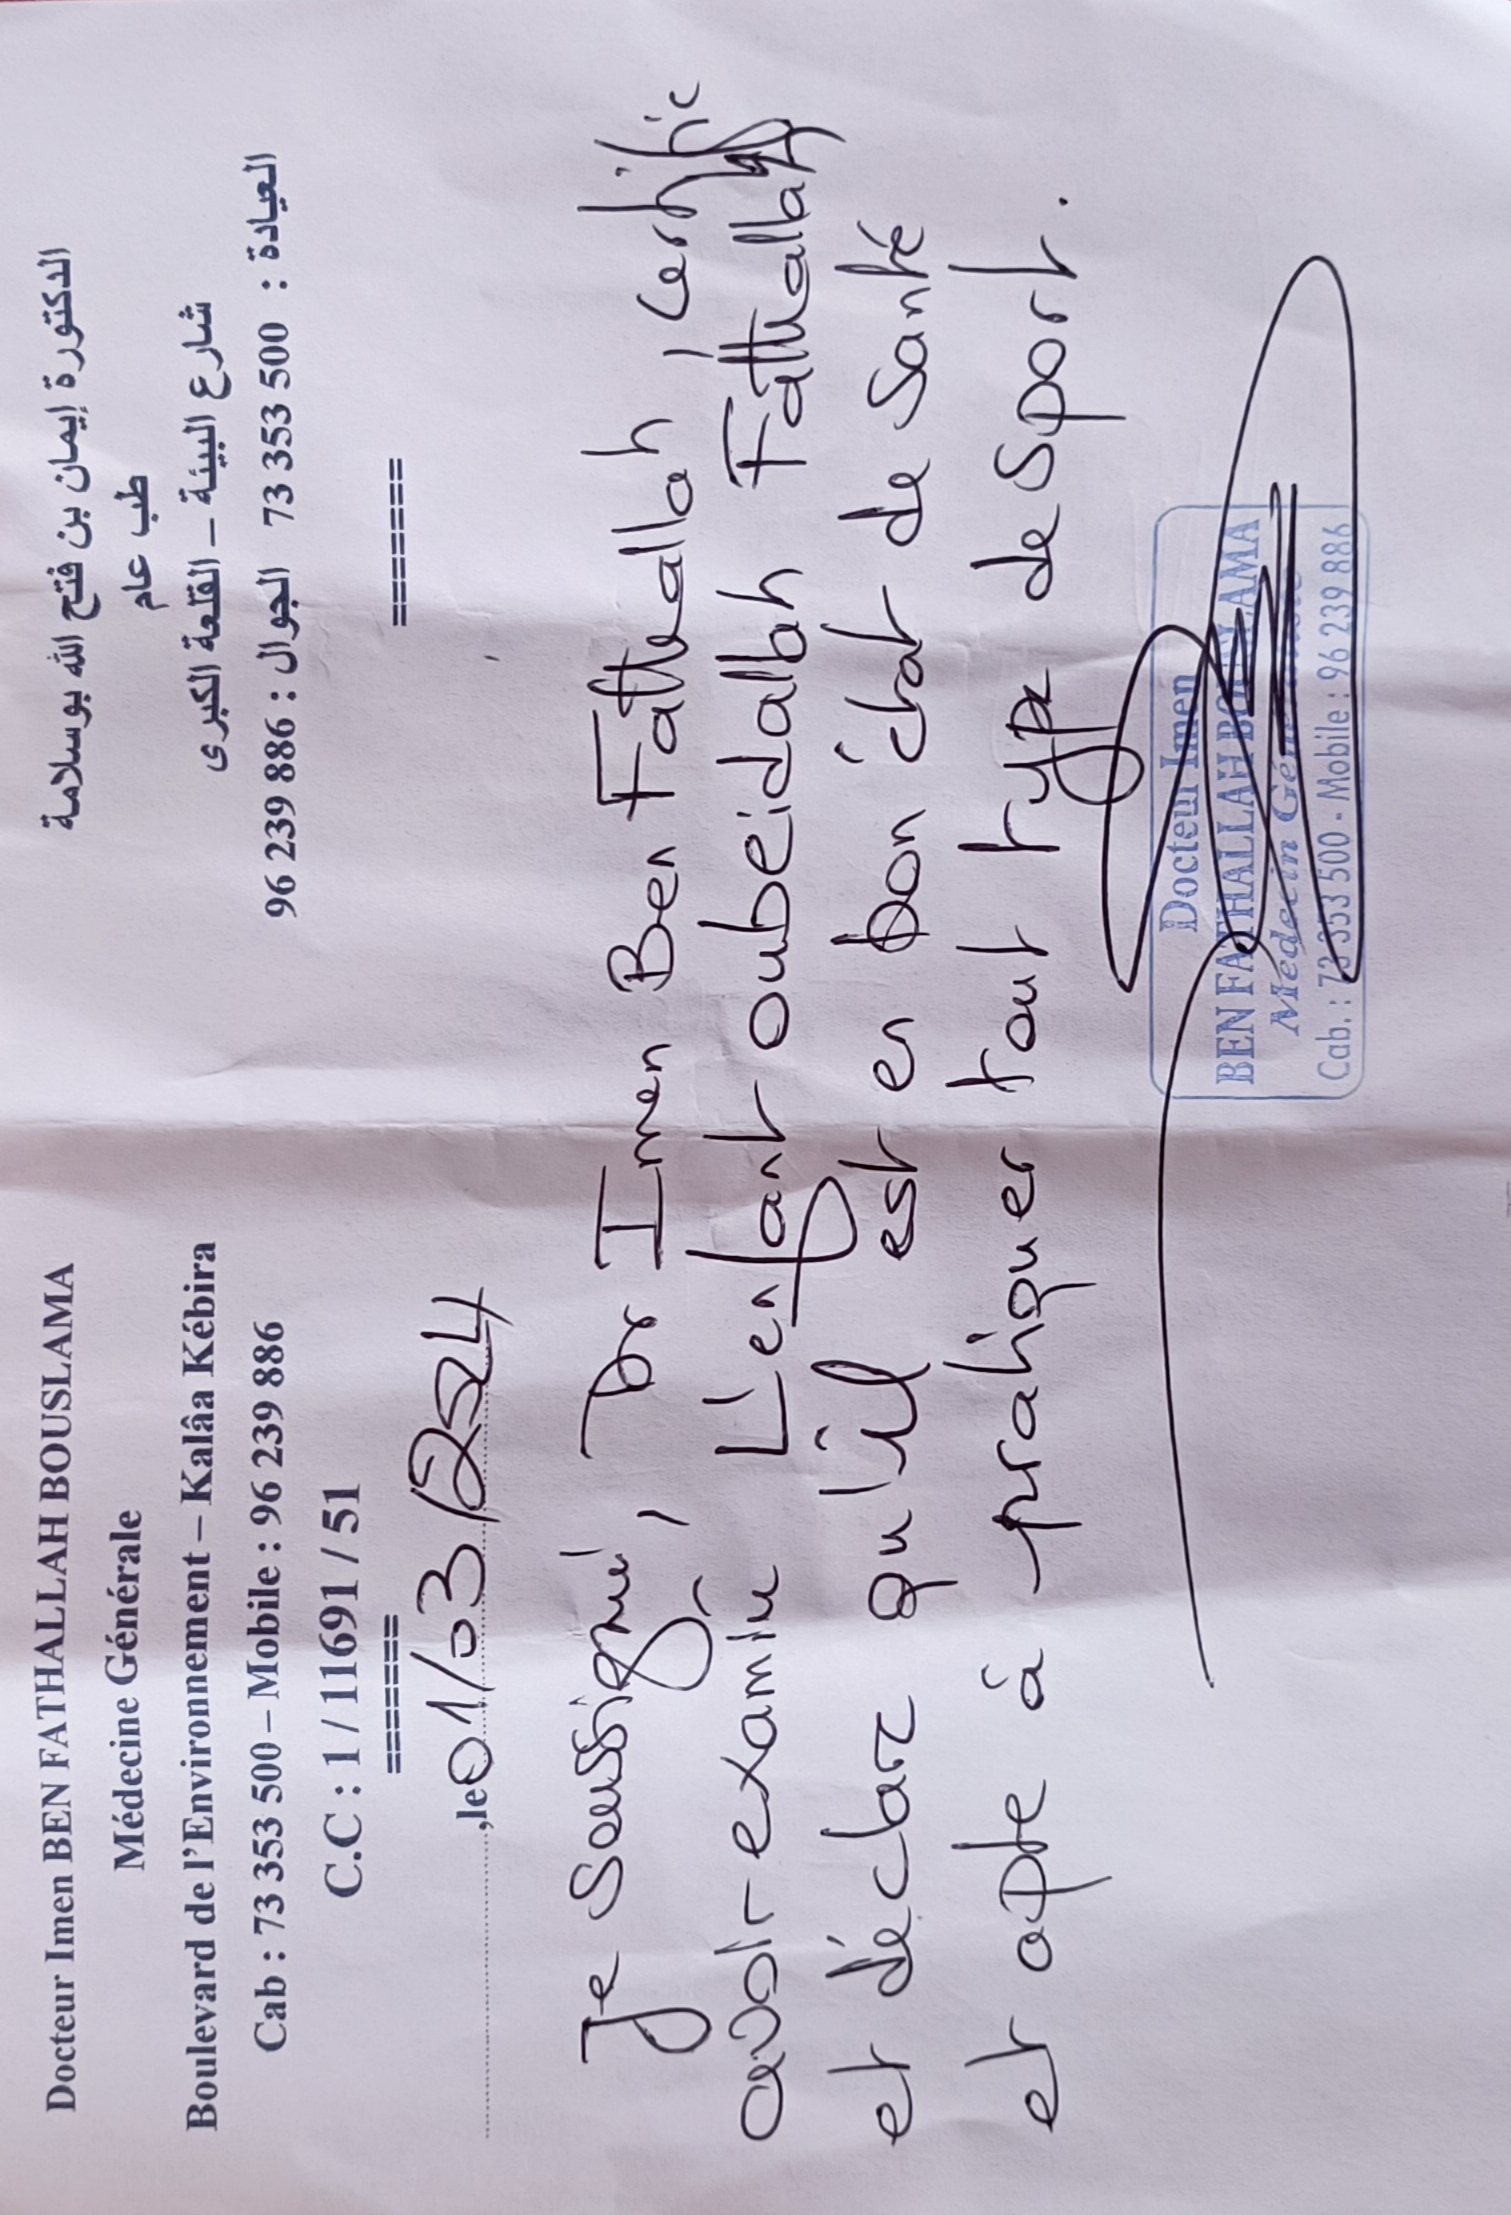 Docteur Imen BEN FATHALLAH BOUSLAMA
Médecine Générale
Boulevard de l'Environnement – Kalâa Kébira
Cab : 73 353 500 – Mobile : 96 239 886
C.C : 1 / 11691 / 51
=======
الدكتورة إيمان بن فتح الله بوسلامة
طب عام
شارع البيئة – القلعة الكبرى
العيادة : 73 353 500 الجوال : 96 239 886
=======
,le 01/03/2024
Je soussigné, Dr Imen Ben Fathallah, certifie
avoir examiné L'enfant oubeidallah Fathallah
et déclare qu'il est en bon état de santé
et apte à pratiquer tout type de Sport.
Docteur Imen
BEN FATHALLAH BOUSLAMA
Médecin Généraliste
Cab. : 73 353 500 - Mobile : 96 239 886